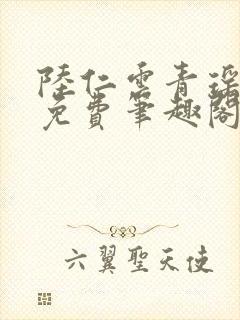 陸仁雲青瑤
免費筆趣閣
六翼聖天使